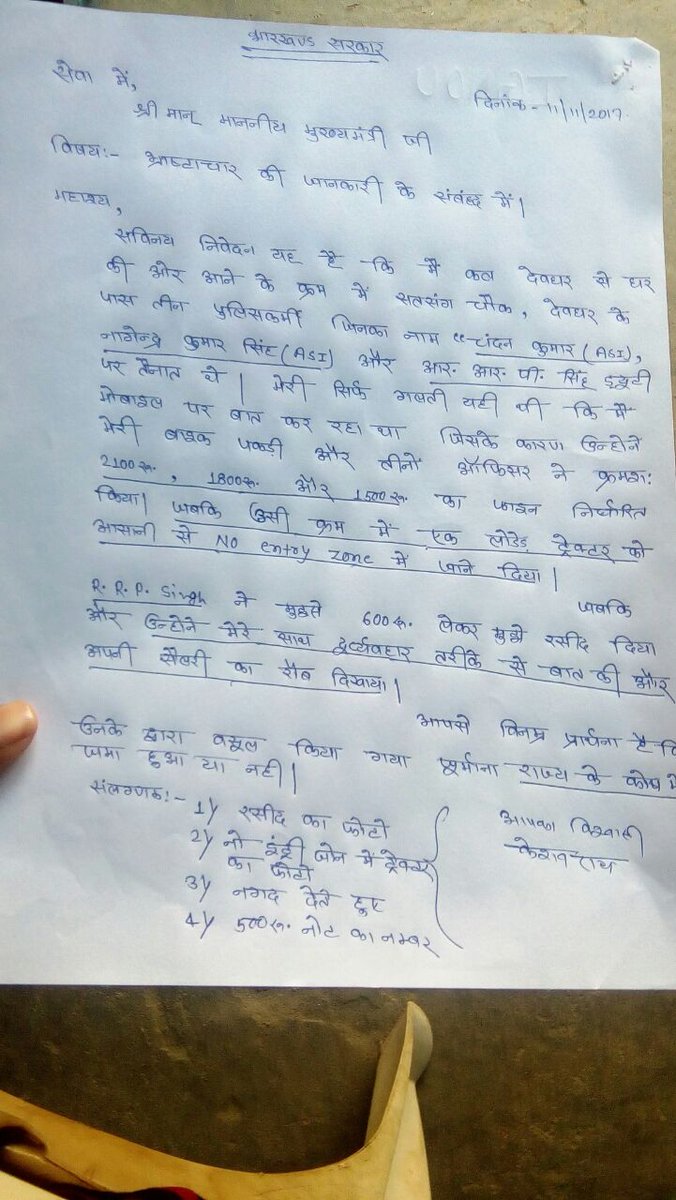 झारखण्ड सरकार
सेवा में,
दिनांक - 11/11/2017.
श्री मान् माननीय मुख्यमंत्री जी
विषय:- भ्रष्टाचार की जानकारी के संबंध में।
महाशय,
सविनय निवेदन यह है कि मैं कल देवघर से घर
की ओर आने के क्रम में सतसंग चौक, देवघर के
पास तीन पुलिसकर्मी जिनका नाम "चंदन कुमार (ASI),
नागेन्द्र कुमार सिंह (ASI) और आर. आर. पी. सिंह ड्यूटी
पर तैनात थे। मेरी सिर्फ गलती यही थी कि मैं
मोबाइल पर बात कर रहा था जिसके कारण उन्होने
मेरी बाइक पकड़ी और तीनों ऑफिसर ने क्रमश:
2100रू., 1800रू. और 1500रू. का फाइन निर्धारित
किया। जबकि उसी क्रम में एक लोडेड ट्रेक्टर को
आसानी से No entry zone में जाने दिया।
जबकि
R. R. P. Singh ने मुझसे 600रू. लेकर मुझे रसीद दिया
और उन्होने मेरे साथ दुर्व्यवहार तरीके से बात की और
अपनी सैलरी का रौब दिखाया।
आपसे विनम्र प्रार्थना है कि
उनके द्वारा वसूल किया गया जुर्माना राज्य के कोष में
जमा हुआ या नही।
संलग्नक:- 1) रसीद का फोटो
2) नो इंट्री जोन में ट्रेक्टर
का फोटो
3) नगद देते हुए
4) 500रू. नोट का नम्बर
आपका विश्वासी
केशव राय